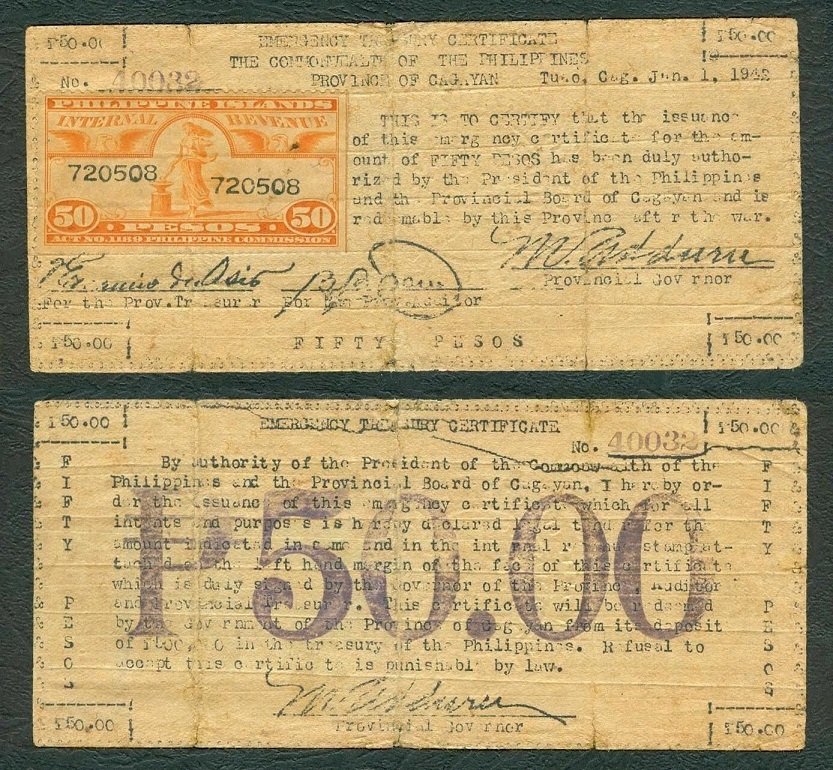 ₱50.00
EMERGENCY TREASURY CERTIFICATE
₱50.00
THE COMMONWEALTH OF THE PHILIPPINES
No. 40032
PROVINCE OF CAGAYAN Tuao, Cag. Jan. 1, 1942
PHILIPPINE ISLANDS
INTERNAL REVENUE
720508 720508
50 PESOS 50
ACT NO. 1189 PHILIPPINE COMMISSION
THIS IS TO CERTIFY that the issuance
of this emergency certificate for the am-
ount of FIFTY PESOS has been duly autho-
rized by the President of the Philippines
and the Provincial Board of Cagayan and is
redeemable by this Province after the war.
M. Adduru
Provincial Governor
For the Prov. Treasurer For the Prov. Auditor
₱50.00
FIFTY PESOS
₱50.00
₱50.00
EMERGENCY TREASURY CERTIFICATE
₱50.00
No. 40032
By authority of the President of the Commonwealth of the
Philippines and the Provincial Board of Cagayan, I hereby or-
der the issuance of this emergency certificate which for all
intents and purposes is hereby declared legal tender for the
amount indicated in same and in the internal revenue stamp at-
tached at the left hand margin of the face of this certificate
which is duly signed by the Governor of the Province, Auditor
and Provincial Treasurer. This certificate will be redeemed
by the Government of the Province of Cagayan from its deposit
of in the treasury of the Philippines. Refusal to
accept this certificate is punishable by law.
FIFTY PESOS
FIFTY PESOS
₱50.00
M. Adduru
Provincial Governor
₱50.00
₱50.00